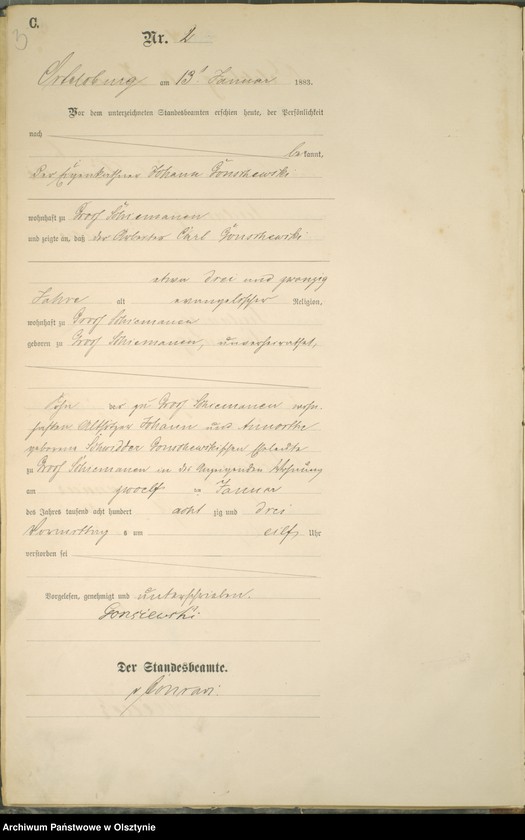 C.
3
Nr. 2
Ortelsburg am 13t Januar 1883.
Vor dem unterzeichneten Standesbeamten erschien heute, der Persönlichkeit
nach
bekannt,
Der Eigenkäthner Johann
wohnhaft zu Groß Schiemanen
und zeigte an, daß der Arbeiter Carl
etwa drei und zwanzig
Jahre alt evangelischer Religion,
wohnhaft zu Groß Schiemanen
geboren zu Groß Schiemanen, unverheirathet,
Sohn der zu Groß Schiemanen wohn-
haften Altsitzer Johann und
geborene Eheleute
zu Groß Schiemanen in des Anzeigenden Wohnung
am zwoelften Januar
des Jahres tausend acht hundert achtzig und drei
Vormittags um eilf Uhr
verstorben sei
Vorgelesen, genehmigt und unterschrieben.
Der Standesbeamte.
Archiwum Państwowe w Olsztynie